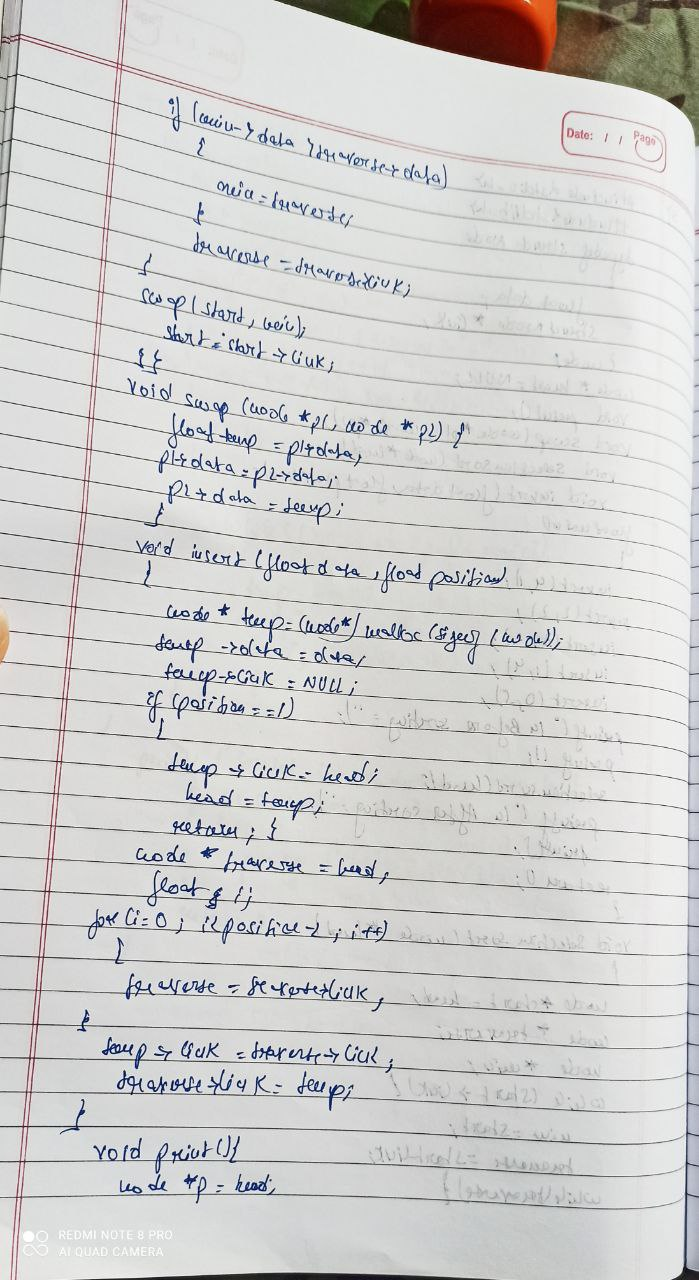 Date: / / Page
if (min->data >traverse->data)
{
min = traverse;
}
traverse = traverse->link;
}
swap (start, min);
start = start->link;
}}
void swap (node *p1, node * p2) {
float temp = p1->data;
p1->data = p2->data;
p2->data = temp;
}
void insert (float data, float position)
{
node * temp = (node*) malloc (sizeof (node));
temp ->data = data;
temp->link = NULL;
if (position ==1)
{
temp -> link = head;
head = temp;
return; }
node * traverse = head;
float i;
for (i=0; i<position-2; i++)
{
traverse = traverse->link;
}
temp -> link = traverse->link;
traverse->link = temp;
}
void print(){
node *p = head;
REDMI NOTE 8 PRO
AI QUAD CAMERA